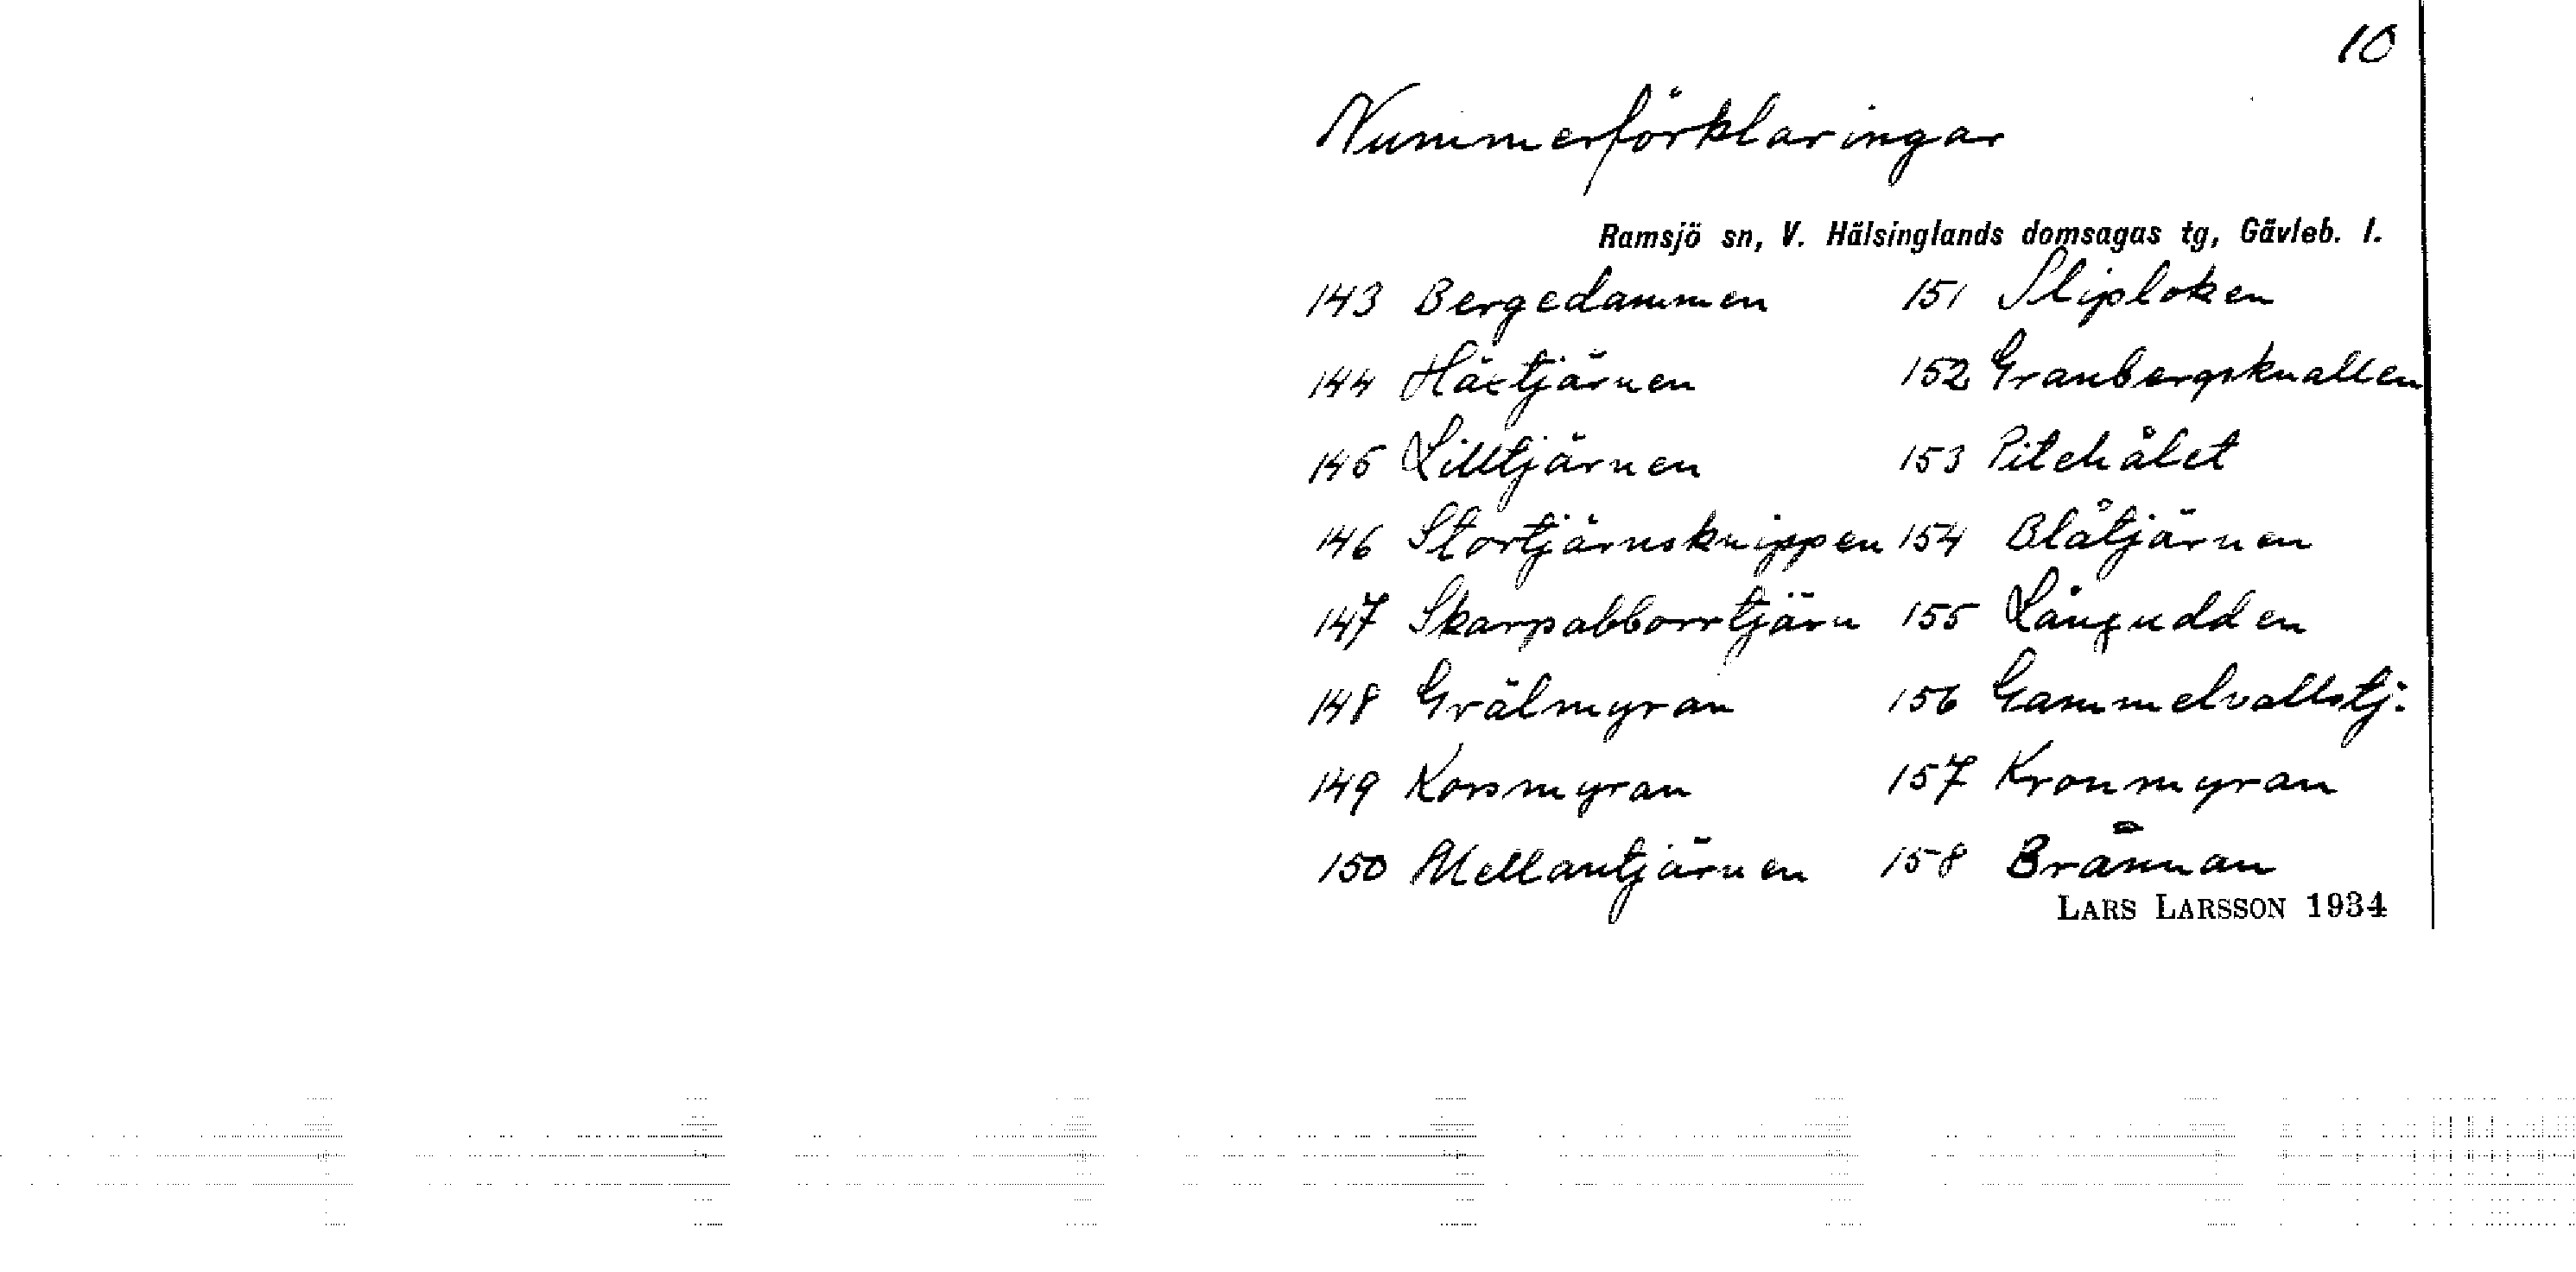 10
Nummerförklaringar
Ramsjö sn, V. Hälsinglands domsagas tg, Gävleb. l.
143 Bergedammen 151 Sliploken
144 Häxtjärnen 152 Granbergsknallen
145 Lilltjärnen 153 Pitehålet
146 Stortjärnsknippen 154 Blåtjärnen
147 Skarpabborrtjärn 155 Långudden
148 Grälmyran 156 Gammelvallstj:
149 Korsmyran 157 Kronmyran
150 Mellantjärnen 158 Brännan
LARS LARSSON 1934